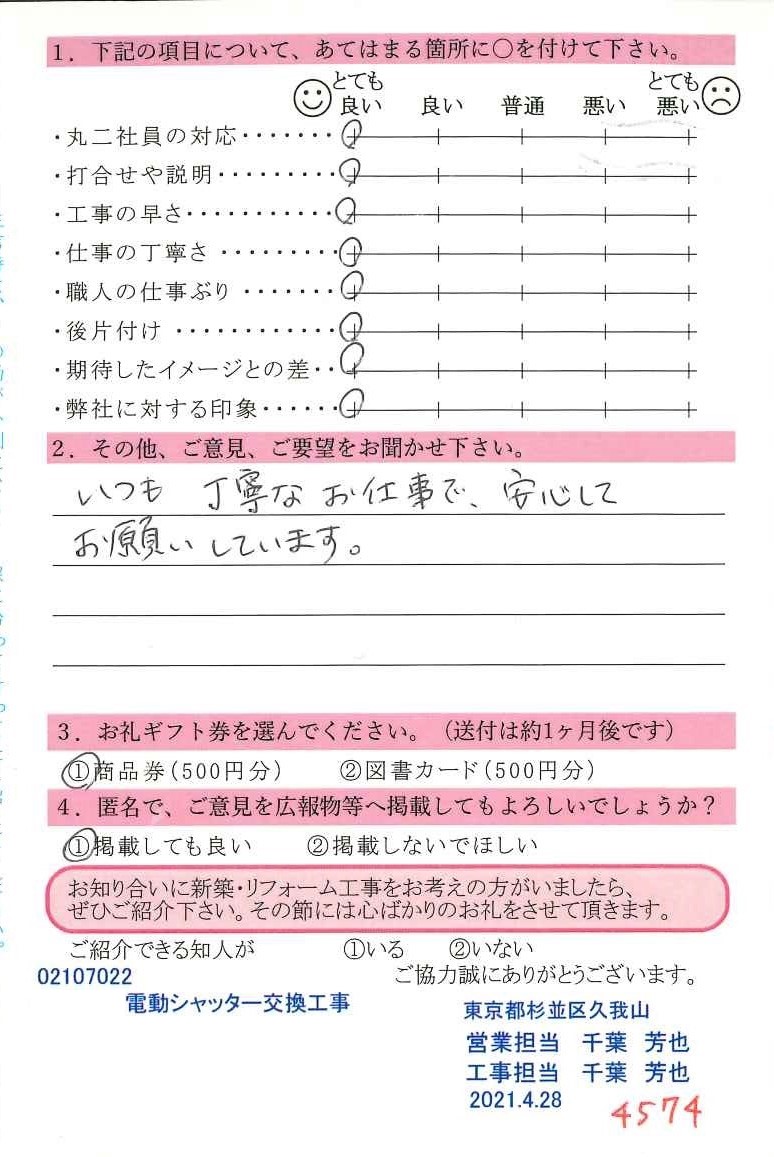 1．下記の項目について、あてはまる箇所に○を付けて下さい。
とても良い 良い 普通 悪い とても悪い
・丸二社員の対応・・・・・・・
・打合せや説明・・・・・・・・・
・工事の早さ・・・・・・・・・・・
・仕事の丁寧さ・・・・・・・・・
・職人の仕事ぶり・・・・・・・
・後片付け・・・・・・・・・・・・
・期待したイメージとの差・・
・弊社に対する印象・・・・・・
2．その他、ご意見、ご要望をお聞かせ下さい。
いつも 丁寧な お仕事で、安心して
お願い しています。
3．お礼ギフト券を選んでください。（送付は約1ヶ月後です）
①商品券（500円分） ②図書カード（500円分）
4．匿名で、ご意見を広報物等へ掲載してもよろしいでしょうか？
①掲載しても良い ②掲載しないでほしい
お知り合いに新築・リフォーム工事をお考えの方がいましたら、
ぜひご紹介下さい。その節には心ばかりのお礼をさせて頂きます。
ご紹介できる知人が ①いる ②いない
02107022 ご協力誠にありがとうございます。
電動シャッター交換工事 東京都杉並区久我山
営業担当 千葉 芳也
工事担当 千葉 芳也
2021.4.28
4574